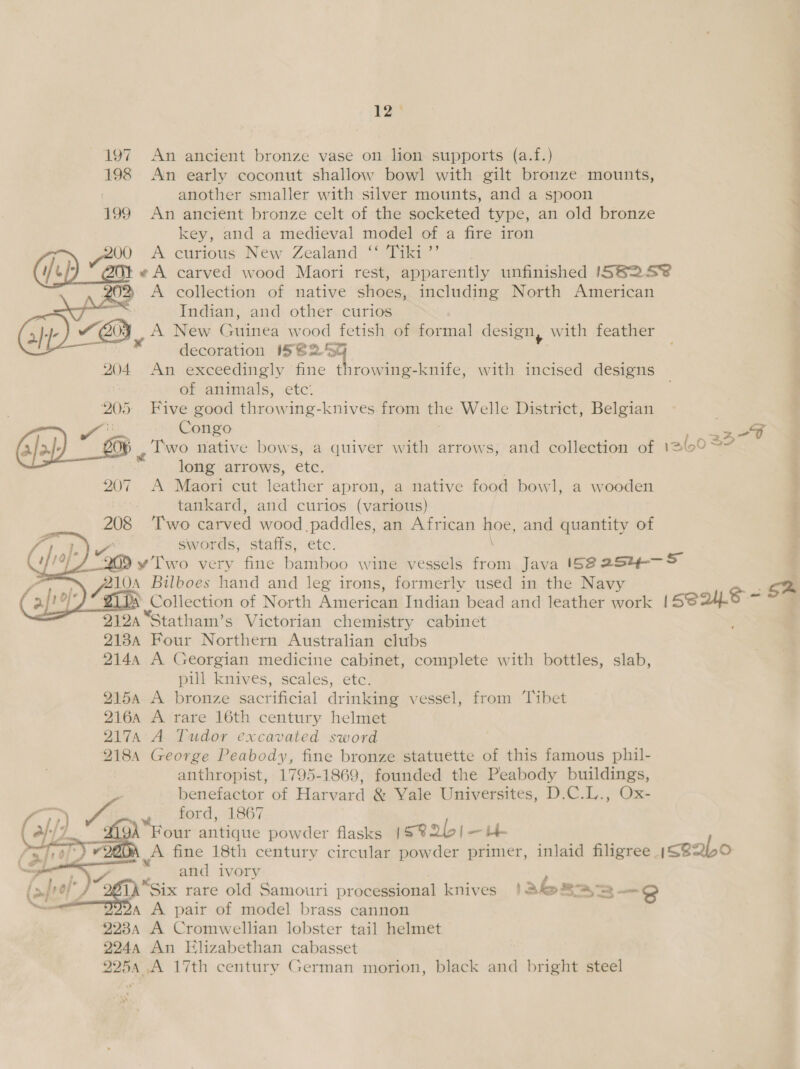 12
197 An ancient bronze vase on lion supports (a.f.)
198 An early coconut shallow bowl with gilt bronze mounts,
another smaller with silver mounts, and a spoon
199 An ancient bronze celt of the socketed type, an old bronze
key, and a medieval model of a fire iron
200 A curious New Zealand “ Tiki ”
201 A carved wood Maori rest, apparently unfinished 158258
202 A collection of native shoes, including North American
Indian, and other curios
203 A New Guinea wood fetish of formal design, with feather
decoration 158259
204 An exceedingly fine throwing-knife, with incised designs
of animals, etc.
205 Five good throwing-knives from the Welle District, Belgian
Congo
206 Two native bows, a quiver with arrows, and collection of
long arrows, etc.
207 A Maori cut leather apron, a native food bowl, a wooden
tankard, and curios (various)
208 Two carved wood paddles, an African hoe, and quantity of
swords, staffs, etc.
209 Two very fine bamboo wine vessels from Java 158254-5
210A Bilboes hand and leg irons, formerly used in the Navy
211A Collection of North American Indian bead and leather work 158248-52
212A Statham’s Victorian chemistry cabinet
213A Four Northern Australian clubs
214A A Georgian medicine cabinet, complete with bottles, slab,
pill knives, scales, etc.
215A A bronze sacrificial drinking vessel, from Tibet
216A A rare 16th century helmet
217A A Tudor excavated sword
218A George Peabody, fine bronze statuette of this famous phil-
anthropist, 1795-1869, founded the Peabody buildings,
benefactor of Harvard & Yale Universites, D.C.L., Ox-
ford, 1867
219A Four antique powder flasks 158261-4
220A A fine 18th century circular powder primer, inlaid filigree 158260
and ivory
221A Six rare old Samouri processional knives
222A A pair of model brass cannon
223A A Cromwellian lobster tail helmet
224A An Elizabethan cabasset
225A A 17th century German morion, black and bright steel